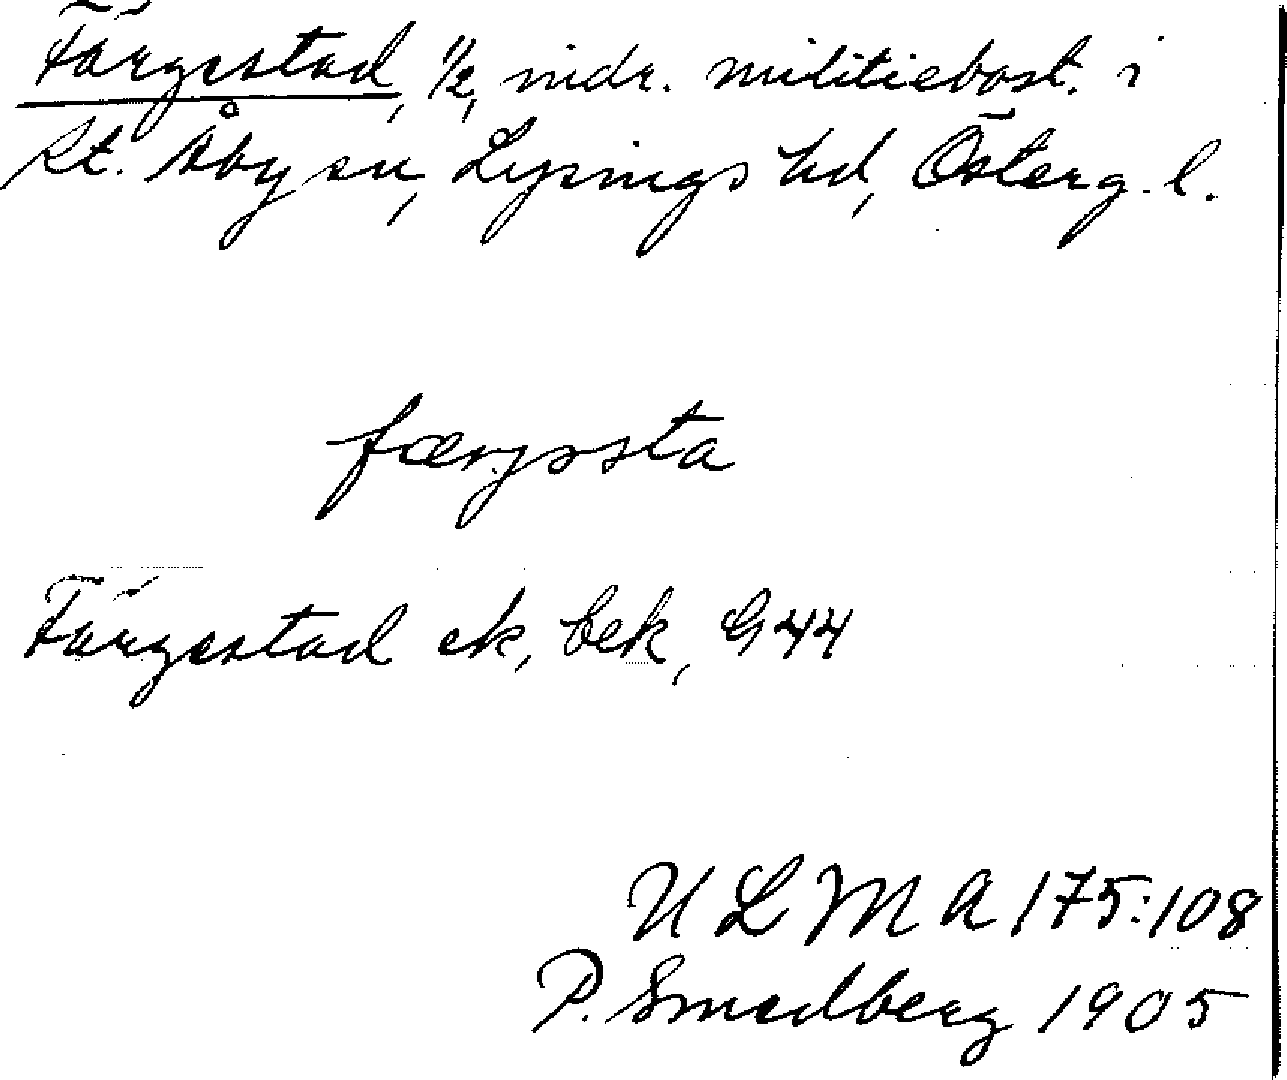 Färgestad, 1/2, indr. militiebost. i
St. Åby sn, Lysings hd, Österg. l.
færjssta
Färgestad ek, bek, G44
ULMA 175:108
P. Smedberg 1905